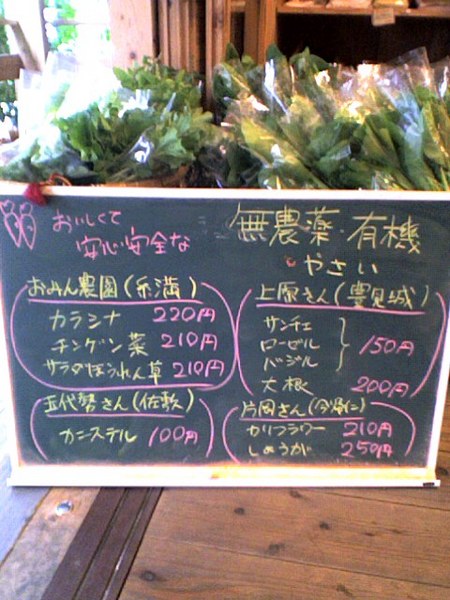 おいしくて
安心安全な
無農薬・有機
やさい
おみん農園(糸満)
カラシナ 220円
チンゲン菜 210円
サラダほうれん草 210円
上原さん(豊見城)
サンチェ
ローゼル
バジル
150円
大根 200円
五代勢さん(佐敷)
カニステル 100円
片岡さん(今帰仁)
カリフラワー 210円
しょうが 250円